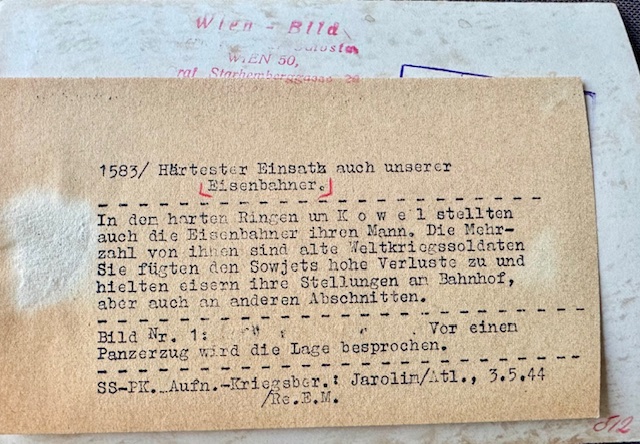 Wien - Bild
WIEN 50,
Starhemberggasse
1583/ Härtester Einsatz auch unserer
Eisenbahner.
In dem harten Ringen um K o w e l stellten
auch die Eisenbahner ihren Mann. Die Mehr-
zahl von ihnen sind alte Weltkriegssoldaten
Sie fügten den Sowjets hohe Verluste zu und
hielten eisern ihre Stellungen am Bahnhof,
aber auch an anderen Abschnitten.
Bild Nr. 1: Vor einem
Panzerzug wird die Lage besprochen.
SS-PK. Aufn.-Kriegsber.: Jarolim/Atl., 3.5.44
/Re.E.M.
812